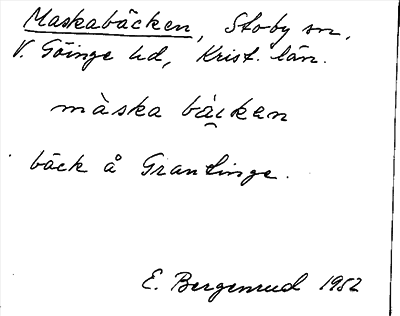 Maskabäcken, Stoby sn.
V. Göinge hd, Krist. län.
màska bäcken
bäck å Granlinge.
E. Bergenrud 1952